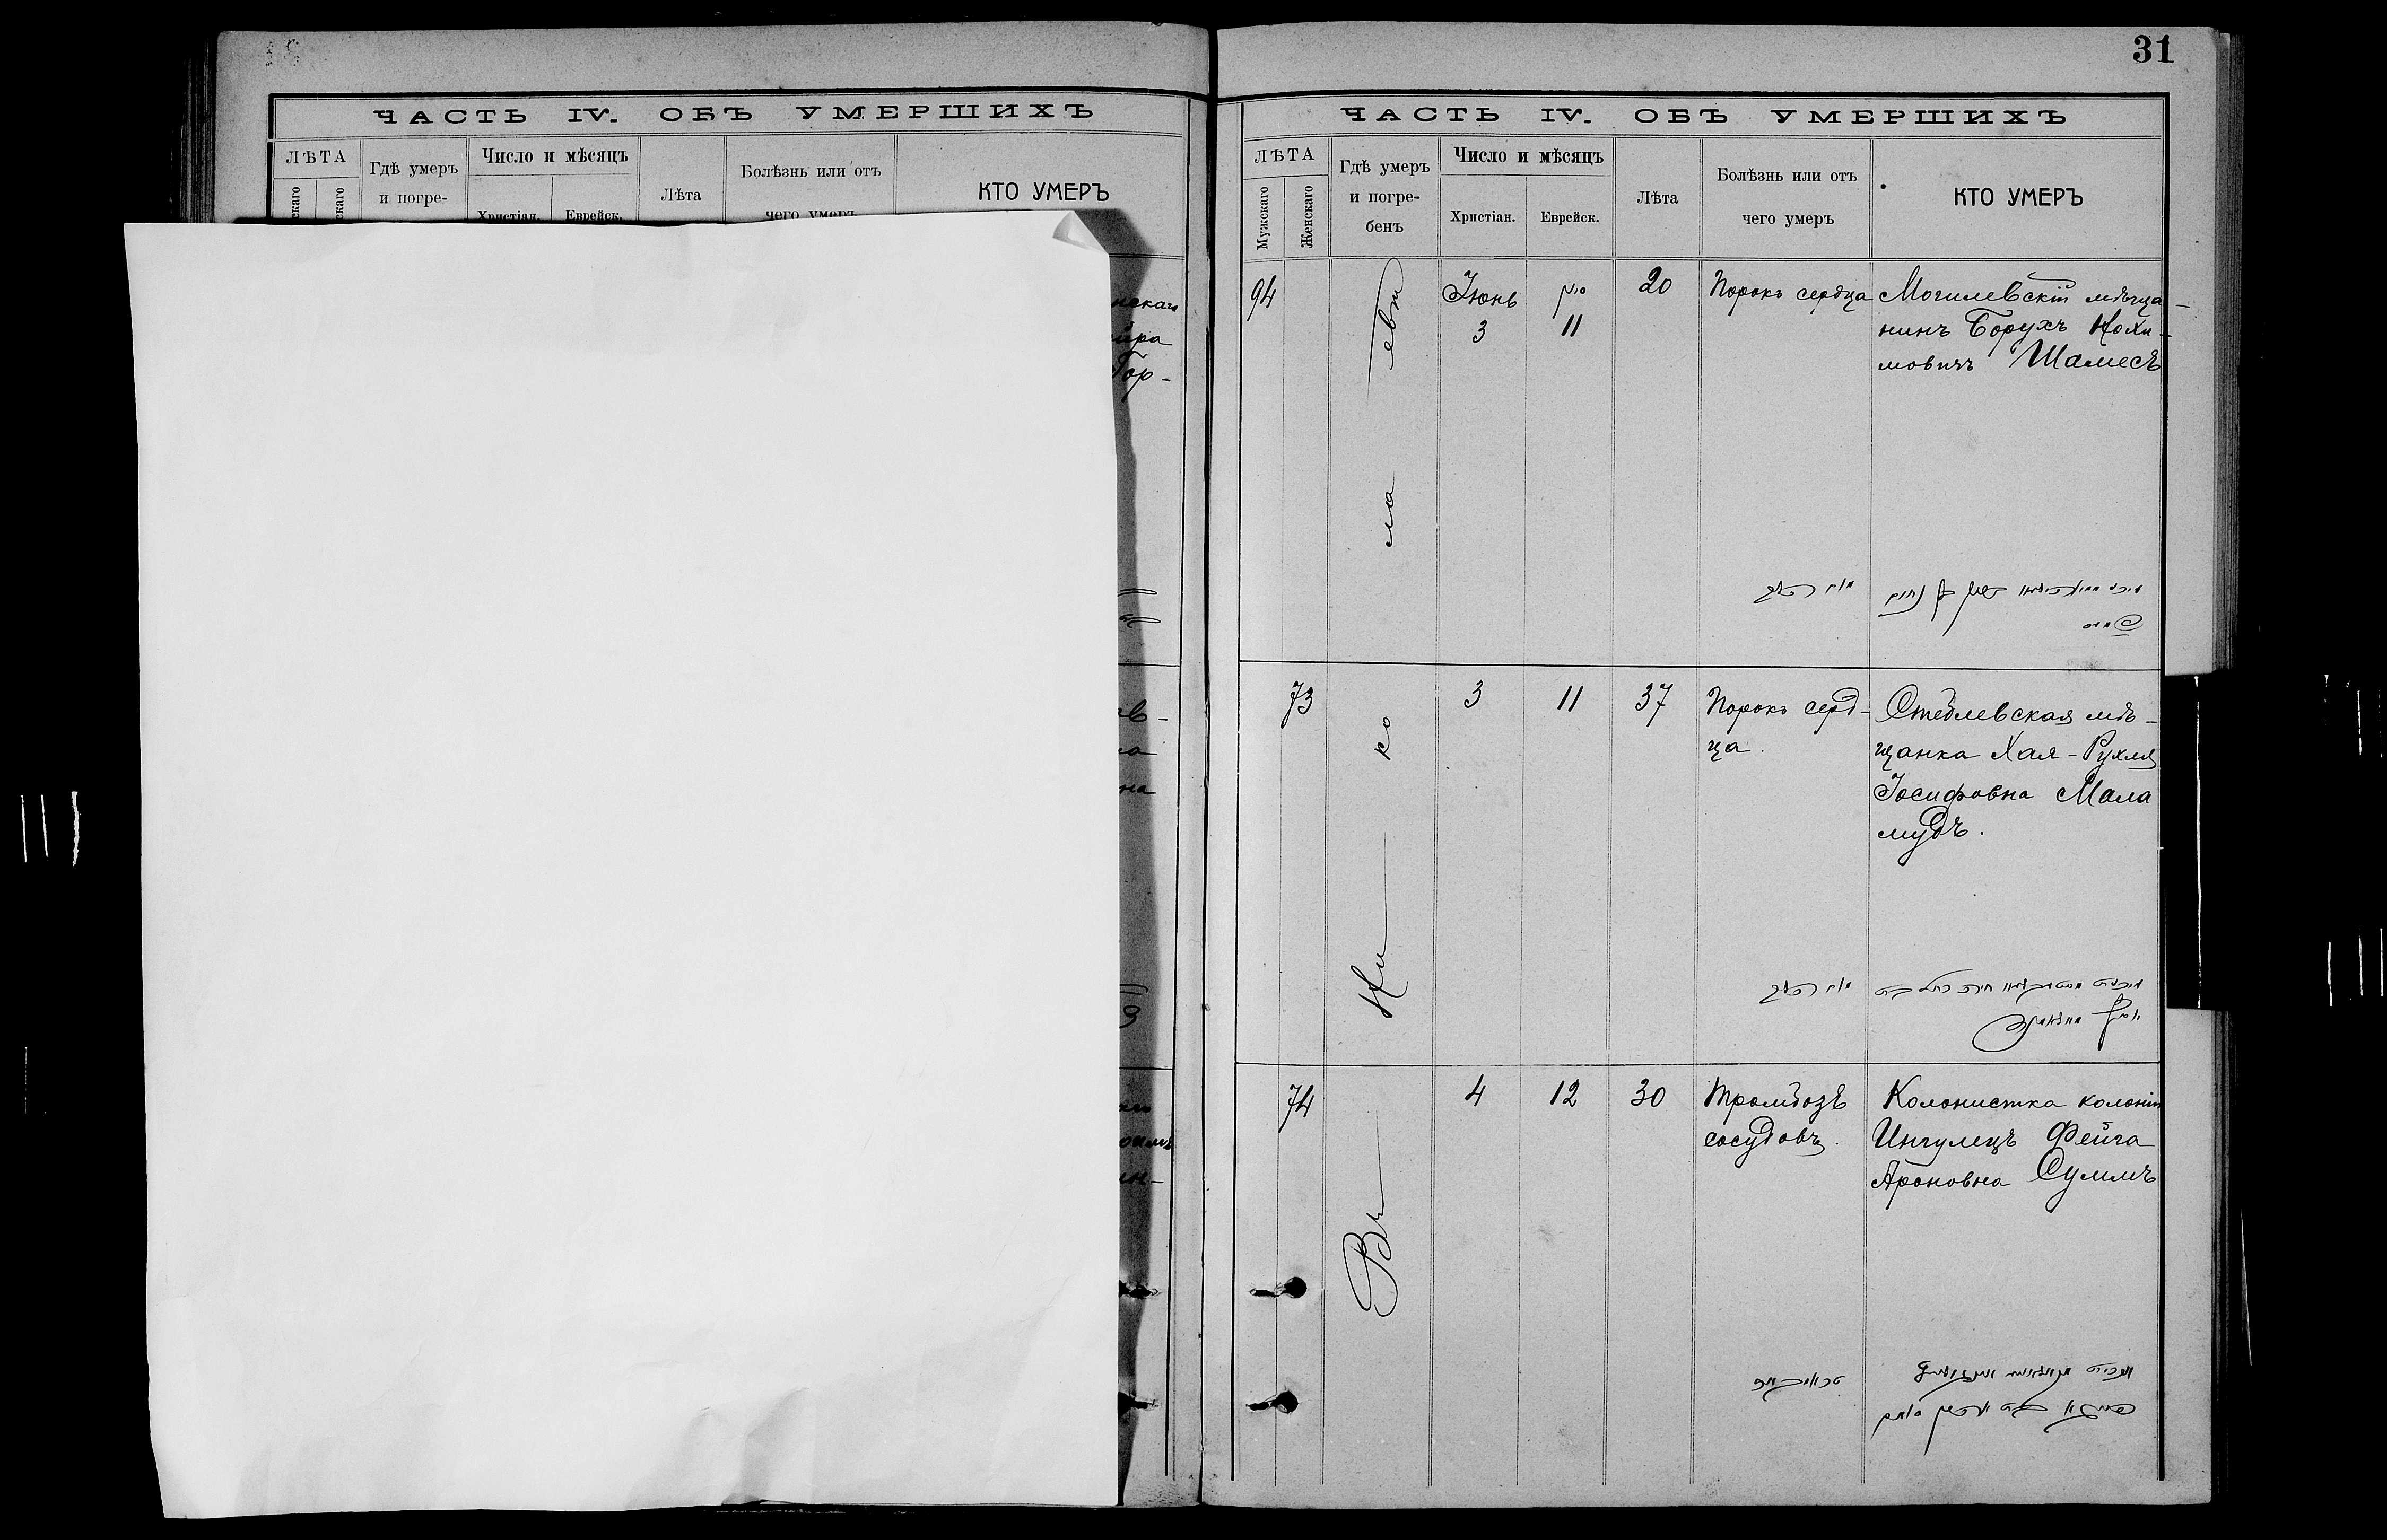 ЧАСТЬ IV. ОБЪ УМЕРШИХЪ
ЛѢТА
скаго
скаго
Гдѣ умеръ
и погре-
Число и мѣсяцъ
Христіан.
Еврейск.
Лѣта
Болѣзнь или отъ
чего умеръ
КТО УМЕРЪ
нскаго
Гор-
на
31
ЧАСТЬ IV. ОБЪ УМЕРШИХЪ
ЛѢТА
Мужскаго
Женскаго
Гдѣ умеръ
и погре-
бенъ
Число и мѣсяцъ
Христіан.
Еврейск.
Лѣта
Болѣзнь или отъ
чего умеръ
КТО УМЕРЪ
Въ Николаевѣ
94
Іюнь
3
סיון
11
20
Порокъ сердца
Могилевскій мѣща-
нинъ Борухъ Нохи-
мовичъ Шамесъ
שאמעס
73
3
11
37
Порокъ серд-
ца.
Стеблевская мѣ-
щанка Хая-Рухля
Іосифовна Мала
мудъ.
74
4
12
30
Тромбозъ
сосудовъ.
Колонистка колоніи
Ингулецъ Фейга
Ароновна Суммъ